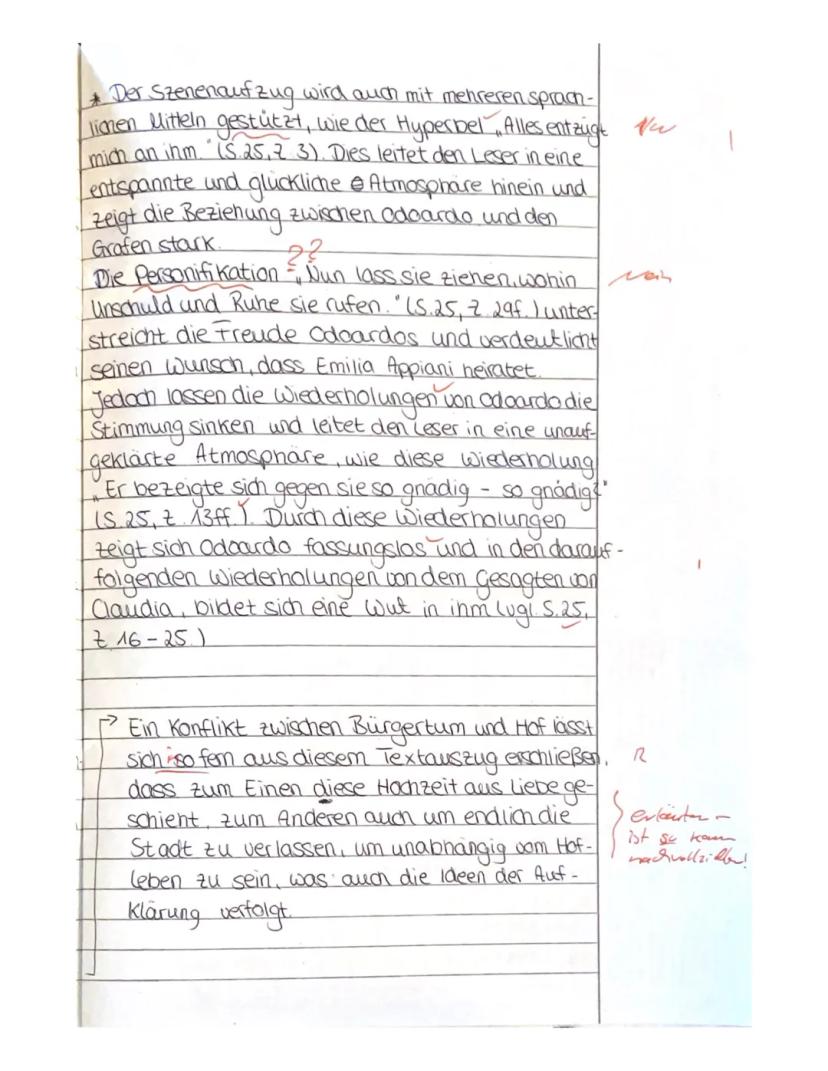 * Der Szenenaufzug wird auch mit mehreren sprach-
lichen Mitteln gestützt, wie der Hyperbel „Alles entzügt
mich an ihm." (S.25, Z. 3). Dies leitet den Leser in eine
entspannte und glückliche Atmosphäre hinein und
zeigt die Beziehung zwischen Odoardo und den
Grafen stark.
??
Die Personifikation „Nun lass sie ziehen, wohin
Nein
Unschuld und Ruhe sie rufen." (S.25, Z. 29f.) unter-
streicht die Freude Odoardos und verdeutlicht
seinen Wunsch, dass Emilia Appiani heiratet.
Jedoch lassen die Wiederholungen von Odoardo die
Stimmung sinken und leitet den Leser in eine unauf-
geklärte Atmosphäre, wie diese Wiederholung
„Er bezeigte sich gegen sie so gnädig - so gnädig?"
(S.25, Z. 13ff.). Durch diese Wiederholungen
zeigt sich Odoardo fassungslos und in den darauf-
folgenden Wiederholungen von dem Gesagten von
Claudia, bildet sich eine Wut in ihm (vgl. S.25,
Z. 16-25.)
Ein Konflikt zwischen Bürgertum und Hof lässt
sich iso fern aus diesem Textauszug erschließen,
R
dass zum Einen diese Hochzeit aus Liebe ge-
schieht, zum Anderen auch um endlich die
erläutern -
Stadt zu verlassen, um unabhängig vom Hof-
ist so kaum
leben zu sein, was auch die Ideen der Auf-
nachvollziehbar!
klärung verfolgt.